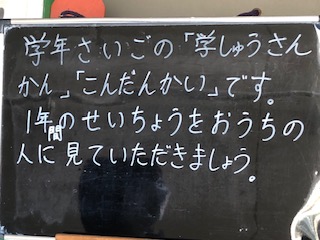 学年さいごの「学しゅうさん
かん」「こんだんかい」です。
1年間のせいちょうをおうちの
人に見ていただきましょう。